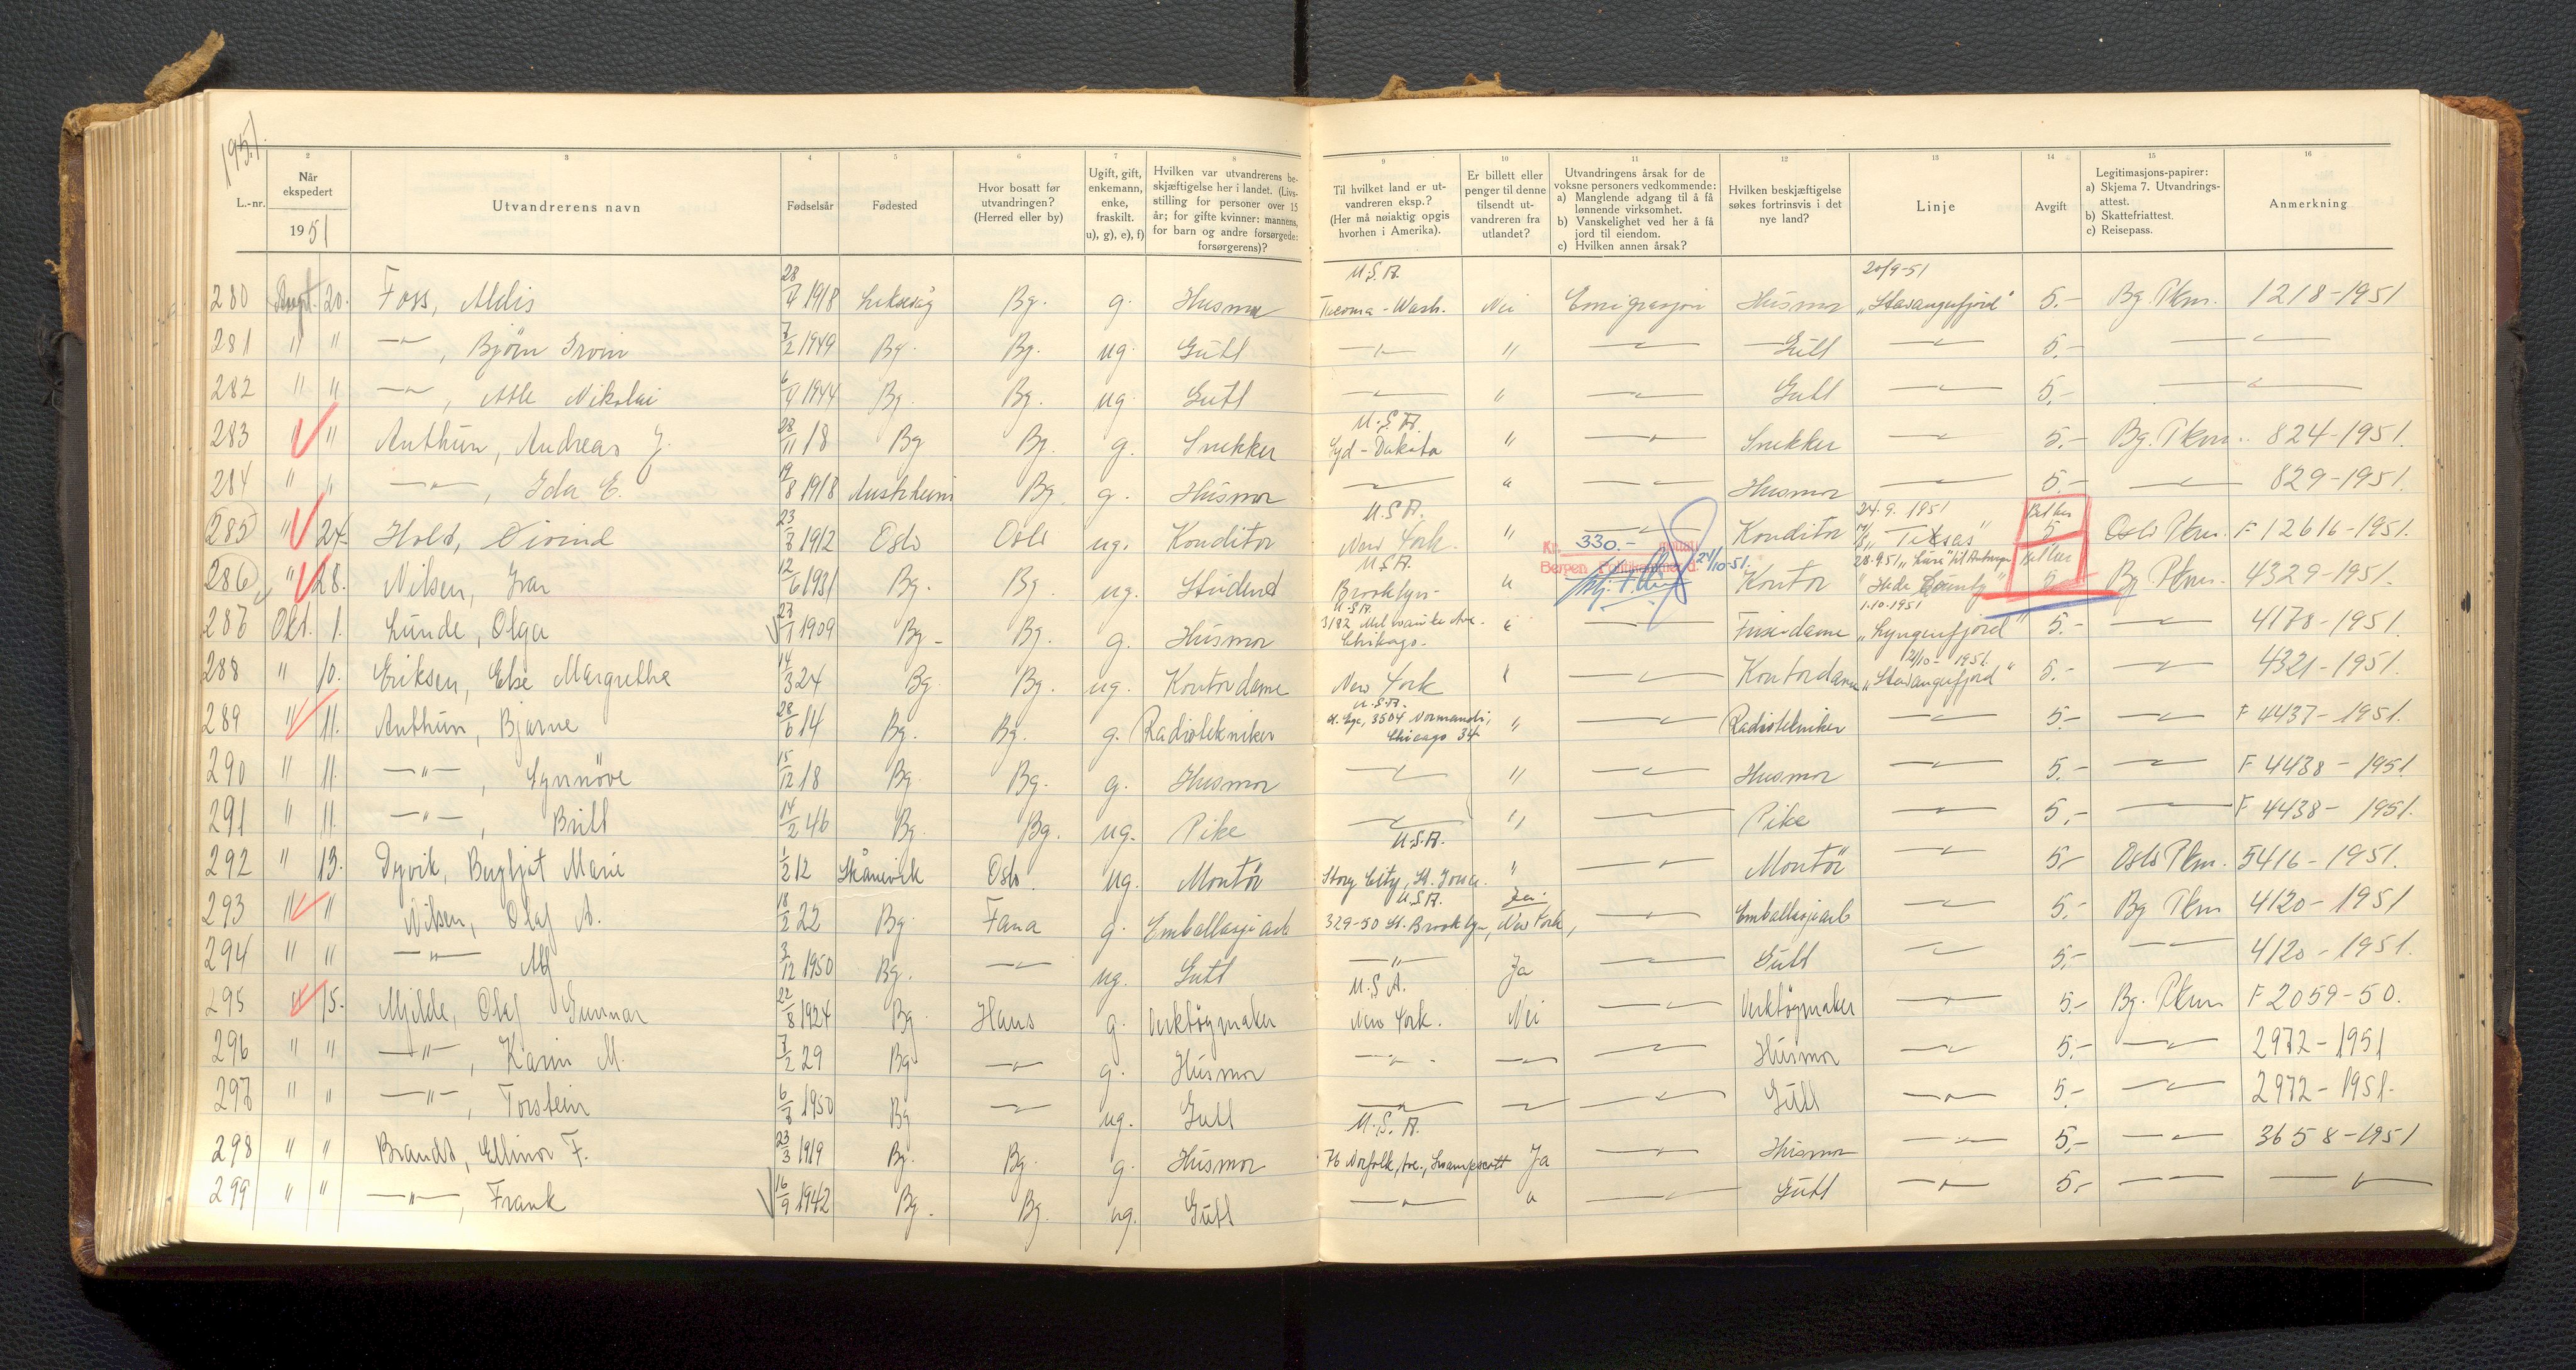 1951.
2 3 4 5 6 7 8 9 10 11 12 13 14 15 16
L.-nr. | Når ekspedert 1951 | Utvandrerens navn | Fødselsår | Fødested | Hvor bosatt før utvandringen? (Herred eller by) | Ugift, gift, enkemann, enke, fraskilt. u), g), e), f) | Hvilken var utvandrerens beskjæftigelse her i landet. (Livsstilling for personer over 15 år; for gifte kvinner: mannens, for barn og andre forsørgede: forsørgerens)? | Til hvilket land er utvandreren eksp.? (Her må nøiaktig opgis hvorhen i Amerika). | Er billett eller penger til denne tilsendt utvandreren fra utlandet? | Utvandringens årsak for de voksne personers vedkommende: a) Manglende adgang til å få lønnende virksomhet. b) Vanskelighet ved her å få jord til eiendom. c) Hvilken annen årsak? | Hvilken beskjæftigelse søkes fortrinsvis i det nye land? | Linje | Avgift | Legitimasjons-papirer: a) Skjema 7. Utvandringsattest. b) Skattefriattest. c) Reisepass. | Anmerkning
280 20. Foss, 28/4 1918 Bg. g. Husmor U.S.A. Tacoma - Wash. Nei Emigrasjon Husmor 20/9-51 "Stavangerfjord" 5.- Bg. Pkm. 1218-1951
281 " " —"—, Bjørn 7/2 1949 Bg. Bg. ug. Gutt —"— " —"— Gutt —"— 5.- —"—
282 " " —"—, Atle Nikolai 1944 Bg. Bg. ug. Gutt —"— " —"— Gutt —"— 5.- —"—
283 " " Anthun, Andreas J. 28/11 18 Bg Bg. g. Snekker U.S.A. Syd-Dakota " —"— Snekker —"— 5.- Bg. Pkm. 824-1951.
284 " " —"—, Ida E. 19/8 1918 Austrheim Bg. g. Husmor —"— " —"— Husmor —"— 5.- —"— 829-1951.
285 " 24. Hold, Øivind 23/8 1912 Oslo Oslo ug. Konditor U.S.A. New York. " —"— Konditor 24.9.1951 "Teksas" 5 Oslo Pkm. F 12616-1951.
Kr. 330.- Bergen Politikammer d. 24/10-51.
286 " 28. Nilsen, Ivar 12/6 1931 Bg. Bg. ug. Student U.S.A. Brooklyn- " Kontor 28.9.51 til 5 Bg Pkm. 4329-1951.
287 Okt. 1. Lunde, Olga 23/1 1909 Bg- Bg. g. Husmor U.S.A. 3182 Milwauke Ave. Chikago. " —"— Frisørdame 1.10.1951 "Lyngenfjord" 5.- —"— 4178-1951.
288 " 10. Eriksen, Else Margrethe 14/3 24 Bg. Bg. ug. Kontordame New York " —"— Kontordame 21/10-1951. "Stavangerfjord" 5.- —"— 4321-1951.
289 " 11. Anthun, Bjarne 28/6 14 Bg. Bg. g. Radiotekniker U.S.A. 3504 Normandi, Chicago 34 " —"— Radiotekniker —"— 5.- —"— F 4437-1951.
290 " 11. —"—, Synnöve 15/12 18 Bg Bg. g. Husmor —"— " —"— Husmor —"— 5.- —"— F 4438-1951
291 " 11. —"—, Britt 14/2 46 Bg. Bg. ug. Pike —"— " —"— Pike —"— 5.- —"— F 4438-1951.
292 " 13. Dyvik, Bergljot Marie 1/2 12 Skånevik Oslo. ug. Montör U.S.A. Story City, St. Iowa. " —"— Montör —"— 5- Oslo Pkm. 5416-1951.
293 " " Nilsen, Olaf A. 18/2 22 Bg. Fana g. Emballasjearb U.S.A. 329-50 St. Brooklyn, New York, Ja —"— Emballasjearb —"— 5.- Bg Pkm 4120-1951
294 " " —"— Alf 3/12 1950 Bg. —"— ug. Gutt —"— Ja —"— Gutt —"— 5.- —"— 4120-1951.
295 " 15. Mjelde, Olaf Gunnar 22/8 1924 Bg. Haus g. Verktøymaker U.S.A. New York. Nei —"— Verktøymaker —"— 5.- Bg. Pkm F 2059-50.
296 " " —"—, Karin M. 7/2 29 Bg —"— g. Husmor —"— —"— —"— Husmor —"— 5.- —"— 2972-1951
297 " " —"—, Torstein 6/8 1950 Bg —"— ug. Gutt —"— —"— —"— Gutt —"— 5.- —"— 2972-1951.
298 " " Brandt, Ellinor F. 23/3 1919 Bg. Bg. g. Husmor U.S.A. 76 Norfolk, Ave., Swampscott Ja —"— Husmor —"— 5.- —"— 3658-1951
299 " " —"—, Frank 16/9 1942 Bg. Bg. ug. Gutt —"— " —"— Gutt —"— 5.- —"— —"—